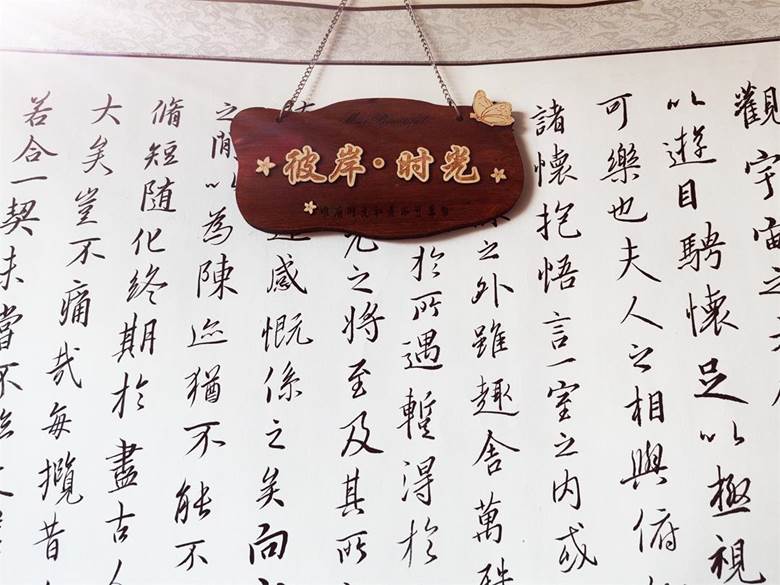 Most Beautiful
彼岸·时光
觀宇宙之
以遊目騁懷足以極視
可樂也夫人之相與俯
諸懷抱悟言一室之内或
之外雖趣舍萬殊
於所遇蹔得於
之將至及其所
感慨係之矣向
之閒以為陳迹猶不能不
脩短随化終期於盡古人
大矣豈不痛哉每攬昔
若合一契未嘗不